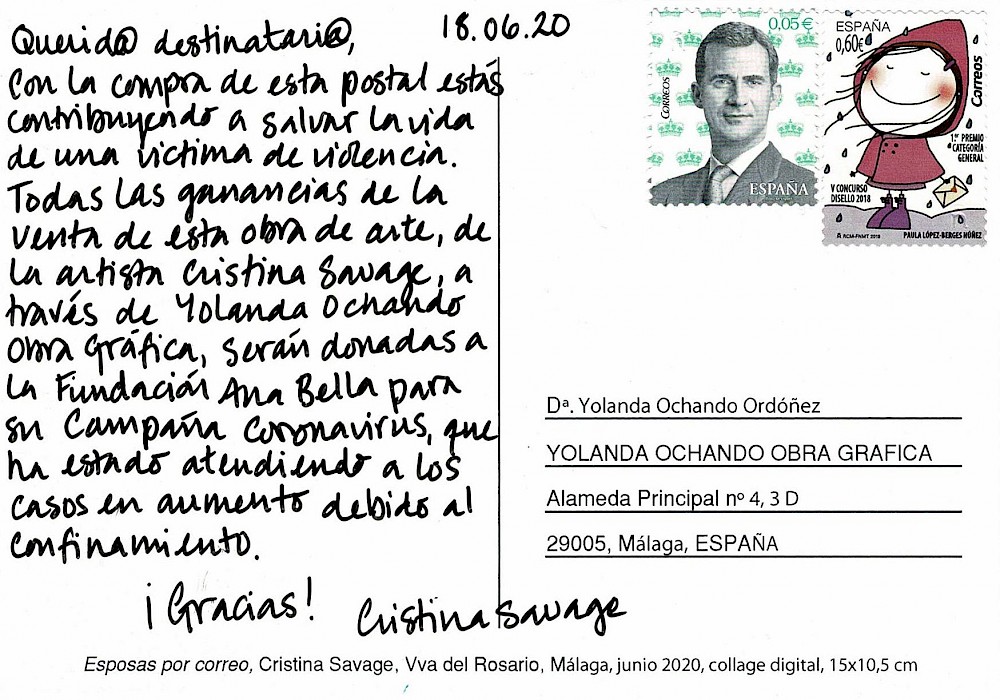 18.06.20
Querid@ destinatari@,
Con la compra de esta postal estás
contribuyendo a salvar la vida
de una victima de violencia.
Todas las ganancias de la
venta de esta obra de arte, de
la artista Cristina Savage, a
través de Yolanda Ochando
Obra Gráfica, serán donadas a
la Fundación Ana Bella para
su Campaña Coronavirus, que
ha estado atendiendo a los
casos en aumento debido al
confinamiento.
¡Gracias!
Cristina Savage
0.05 €
CORREOS
ESPAÑA
ESPAÑA
0,60€
Correos
1.er PREMIO
CATEGORÍA
GENERAL
V CONCURSO
DISELLO 2018
RCM-FNMT 2018
PAULA LÓPEZ-BERGES NÚÑEZ
Dª. Yolanda Ochando Ordóñez
YOLANDA OCHANDO OBRA GRAFICA
Alameda Principal nº 4, 3 D
29005, Málaga, ESPAÑA
Esposas por correo, Cristina Savage, Vva del Rosario, Málaga, junio 2020, collage digital, 15x10,5 cm